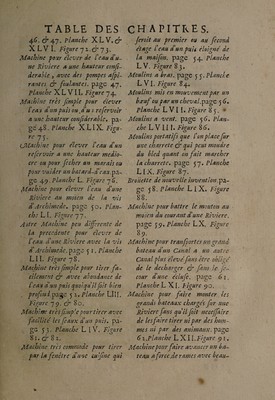 TABLE DES CHAPITRES.
46. & 47. Planche XLV. &
XLVI. Figure 72. & 73.
Machine pour élever de l'eau d'u-
ne Riviere a une hauteur consi-
derable, avec des pompes aspi-
rantes & foulantes. page 47.
Planche XLVII. Figure 74.
Machine tres simple pour élever
l'eau d'un puis ou d'un reservoir a
une hauteur considerable. pa-
ge 48. Planche XLIX. Figu-
re 75.
Machine pour élever l'eau d'un
reservoir a une hauteur medio-
cre ou pour secher un marais ou
pour vuider un batard-d'eau. pa-
ge 49. Planche L. Figure 76.
Machine pour élever l'eau d'une
Riviere au moien de la vis
d'Archimede. page 50. Plan-
che LI. Figure 77.
Autre Machine peu differente de
la precedente pour élever de
l'eau d'une Riviere avec la vis
d'Archimede. page 51. Planche
LII. Figure 78.
Machine tres simple pour tirer fa-
cilement & avec abondance de
l'eau d'un puis quoiqu'il soit bien
profond. page 52. Planche LIII.
Figure 79. & 80.
Machine tres simple pour tirer avec
facilité les seaux d'un puis. pa-
ge 53. Planche LIV. Figure
81. & 82.
Machine tres commode pour tirer
par la fenêtre d'une cuisine qui
seroit au premier ou au second
étage l'eau d'un puis éloigné de
la maison. page 54. Planche
LV. Figure 83.
Moulins a bras. page 55. Planche
LVI. Figure 84.
Moulins mis en mouvement par un
bœuf ou par un cheval. page 56.
Planche LVII. Figure 85.
Moulins a vent. page 56. Plan-
che LVIII. Figure 86.
Moulins portatifs que l'on place sur
une charrete & qui peut moudre
du bled quant on fait marcher
la charrete. page 57. Planche
LIX. Figure 87.
Broüette de nouvelle invention. pa-
ge 58. Planche LIX. Figure
88.
Machine pour battre le mouton au
moien du courant d'une Riviere.
page 59. Planche LX. Figure
89.
Machine pour transporter un grand
bateau d'un Canal a un autre
Canal plus élevé sans être obligé
de le decharger & sans le se-
cour d'une écluse. page 61.
Planche LXI. Figure 90.
Machine pour faire monter les
grands bateaux chargés sur une
Riviere sans qu'il soit necessaire
de les faire tirer ni par des hom-
mes ni par des animaux. page
62. Planche LXII. Figure 91.
Machine pour faire avancer un ba-
teau a force de rames avec beau-